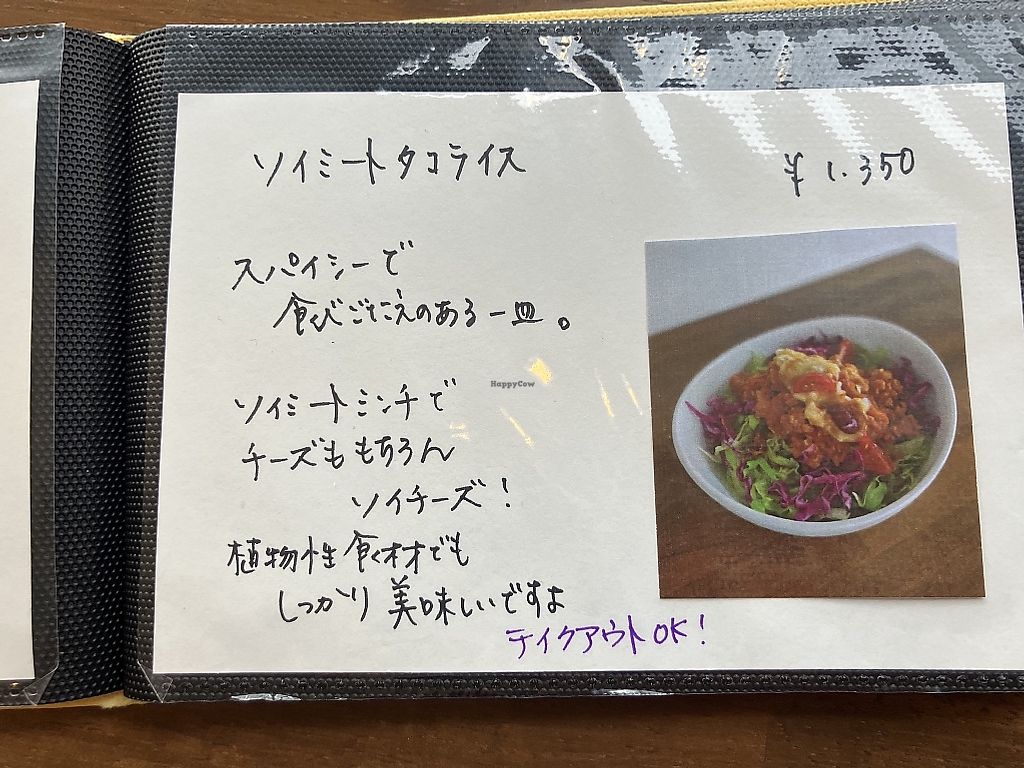 ソイミートタコライス
¥1.350
スパイシーで
食べごたえのある一皿。
ソイミートミンチで
チーズももちろん
ソイチーズ!
植物性食材でも
しっかり美味しいですよ
テイクアウトOK!
HappyCow